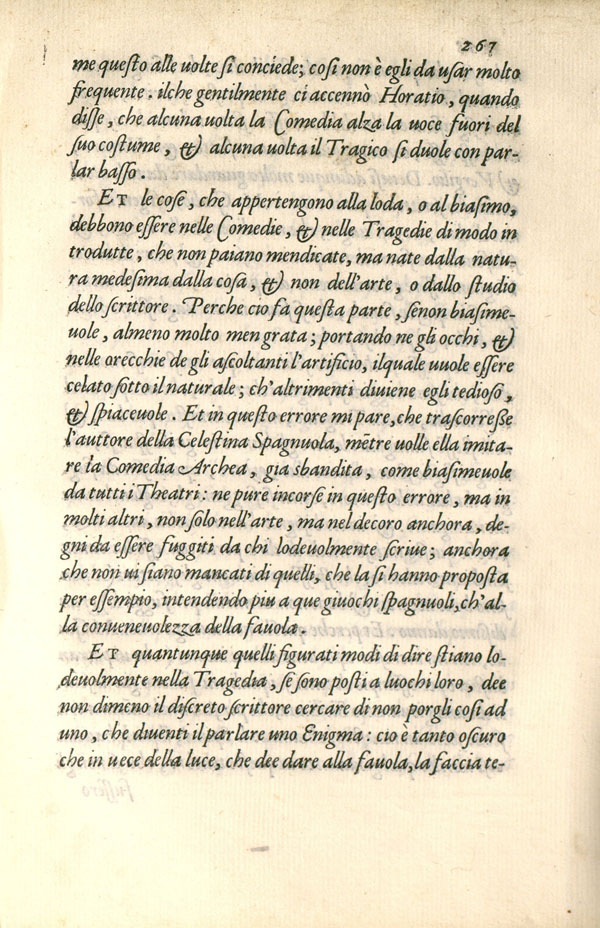 267
me questo alle uolte si conciede; cosi non è egli da usar molto
frequente. ilche gentilmente ci accennò Horatio, quando
disse, che alcuna uolta la Comedia alza la uoce fuori del
suo costume, & alcuna uolta il Tragico si duole con par-
lar basso.
ET le cose, che appertengono alla loda, o al biasimo,
debbono essere nelle Comedie, & nelle Tragedie di modo in
trodutte, che non paiano mendicate, ma nate dalla natu-
ra medesima dalla cosa, & non dell'arte, o dallo studio
dello scrittore. Perche cio fa questa parte, senon biasime-
uole, almeno molto men grata; portando ne gli occhi, &
nelle orecchie de gli ascoltanti l'artificio, ilquale uuole essere
celato sotto il naturale; ch'altrimenti diuiene egli tedioso,
& spiaceuole. Et in questo errore mi pare, che trascorresse
l'auttore della Celestina Spagnuola, mẽtre uolle ella imita-
re la Comedia Archea, gia sbandita, come biasimeuole
da tutti i Theatri: ne pure incorse in questo errore, ma in
molti altri, non solo nell'arte, ma nel decoro anchora, de-
gni da essere fuggiti da chi lodeuolmente scriue; anchora
che non ui siano mancati di quelli, che la si hanno proposta
per essempio, intendendo piu a que giuochi spagnuoli, ch'al-
la conueneuolezza della fauola.
ET quantunque quelli figurati modi di dire stiano lo-
deuolmente nella Tragedia, se sono posti a luochi loro, dee
non dimeno il discreto scrittore cercare di non porgli cosi ad
uno, che diuenti il parlare uno Enigma: cio è tanto oscuro
che in uece della luce, che dee dare alla fauola, la faccia te-